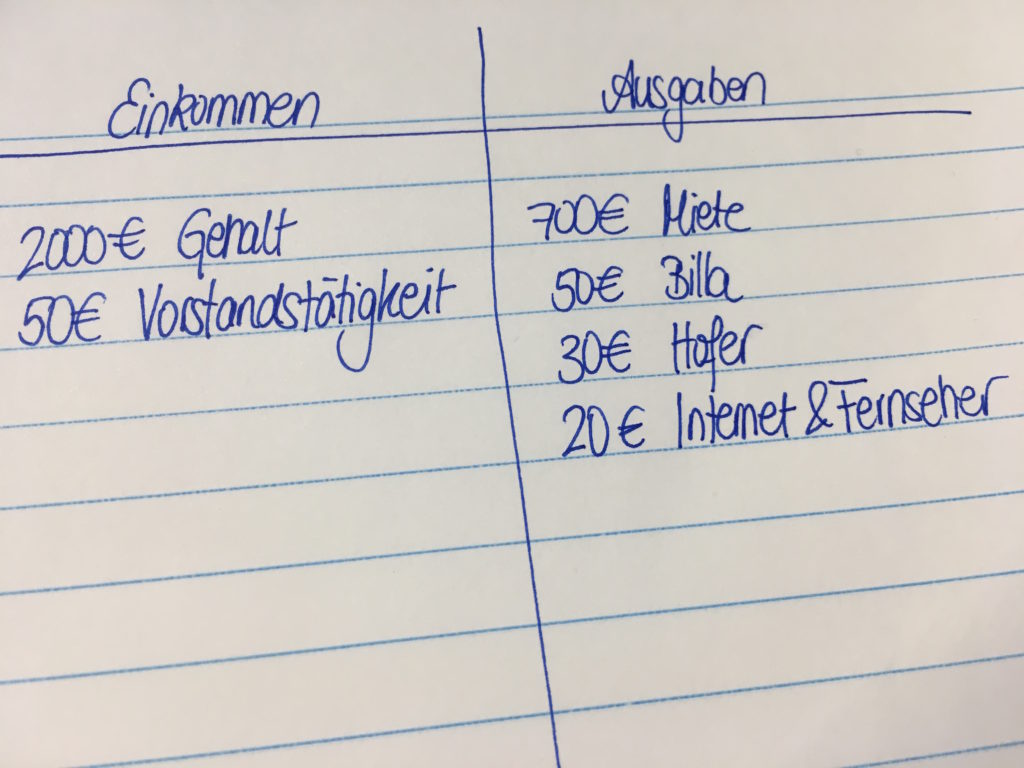 Einkommen
Ausgaben
2000€ Gehalt
50€ Vorstandstätigkeit
700€ Miete
50€ Billa
30€ Hofer
20€ Internet & Fernseher